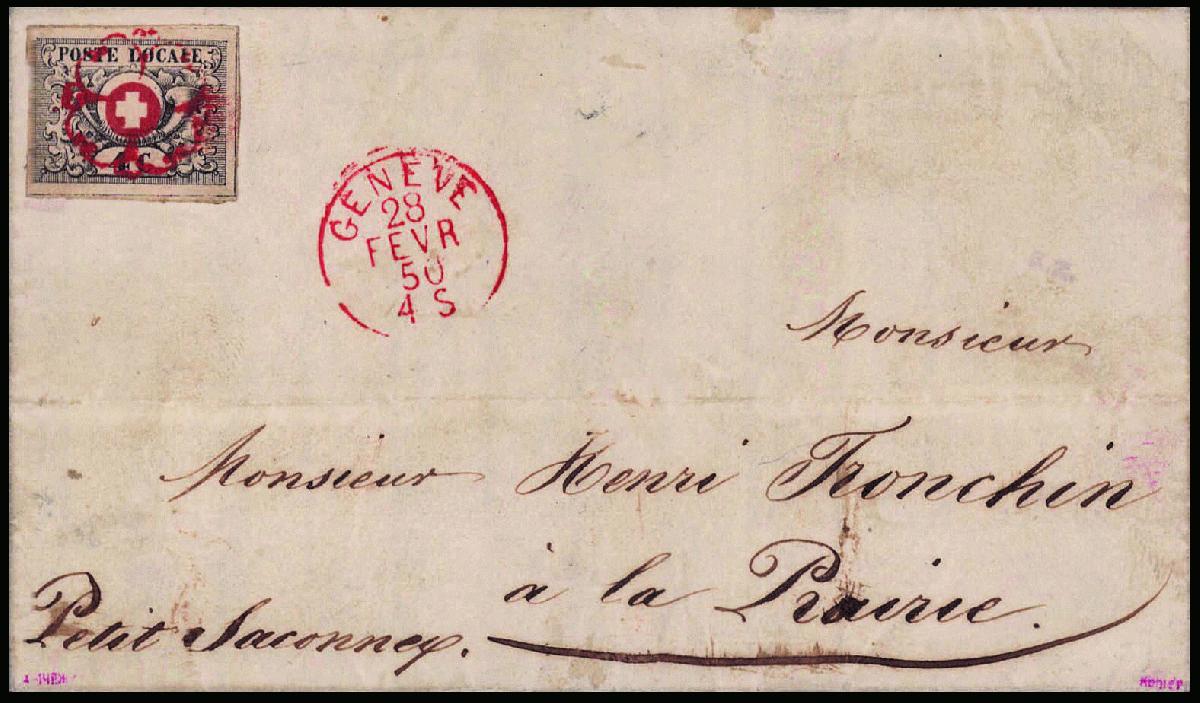 POSTE LOCALE
4 C
GENEVE
28
FEVR
50
4 S
Monsieur
Monsieur Henri Tronchin
à la Prairie.
Petit Saconnex.